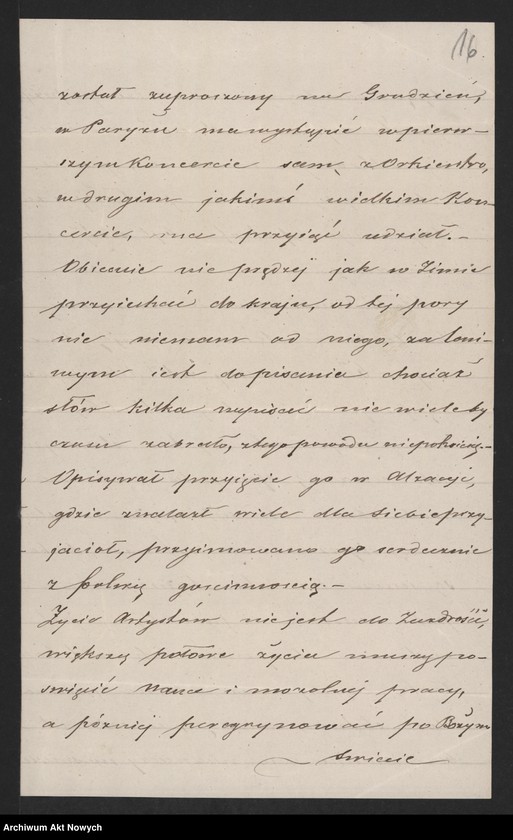 16.
został zaproszony na Grudzień,
w Paryżu ma wystąpić w pierw-
szym Koncercie sam, z Orkiestrą,
w drugim jakimś wielkim Kon-
cercie, ma przyiąć udział.-
Obiecuie nie prędzej jak w Zimie
przyiechać do kraju, od tej pory
nic niemam od niego, za leni-
wym iest do pisania chociaż
słów kilka napisać nie wiele by
czasu zabrało, z tego powodu
Opisywał przyięcie go w Alzacyi,
gdzie znalazł wiele dla siebie przy-
jaciół, przyjmowano go serdecznie
z polską gościnnością.-
Życie Artystów niejest do Zazdrości,
większą połowę życia muszą po-
święcić Nauce i mozolnej pracy,
a później peregrynować po Bożym
świecie
Archiwum Akt Nowych